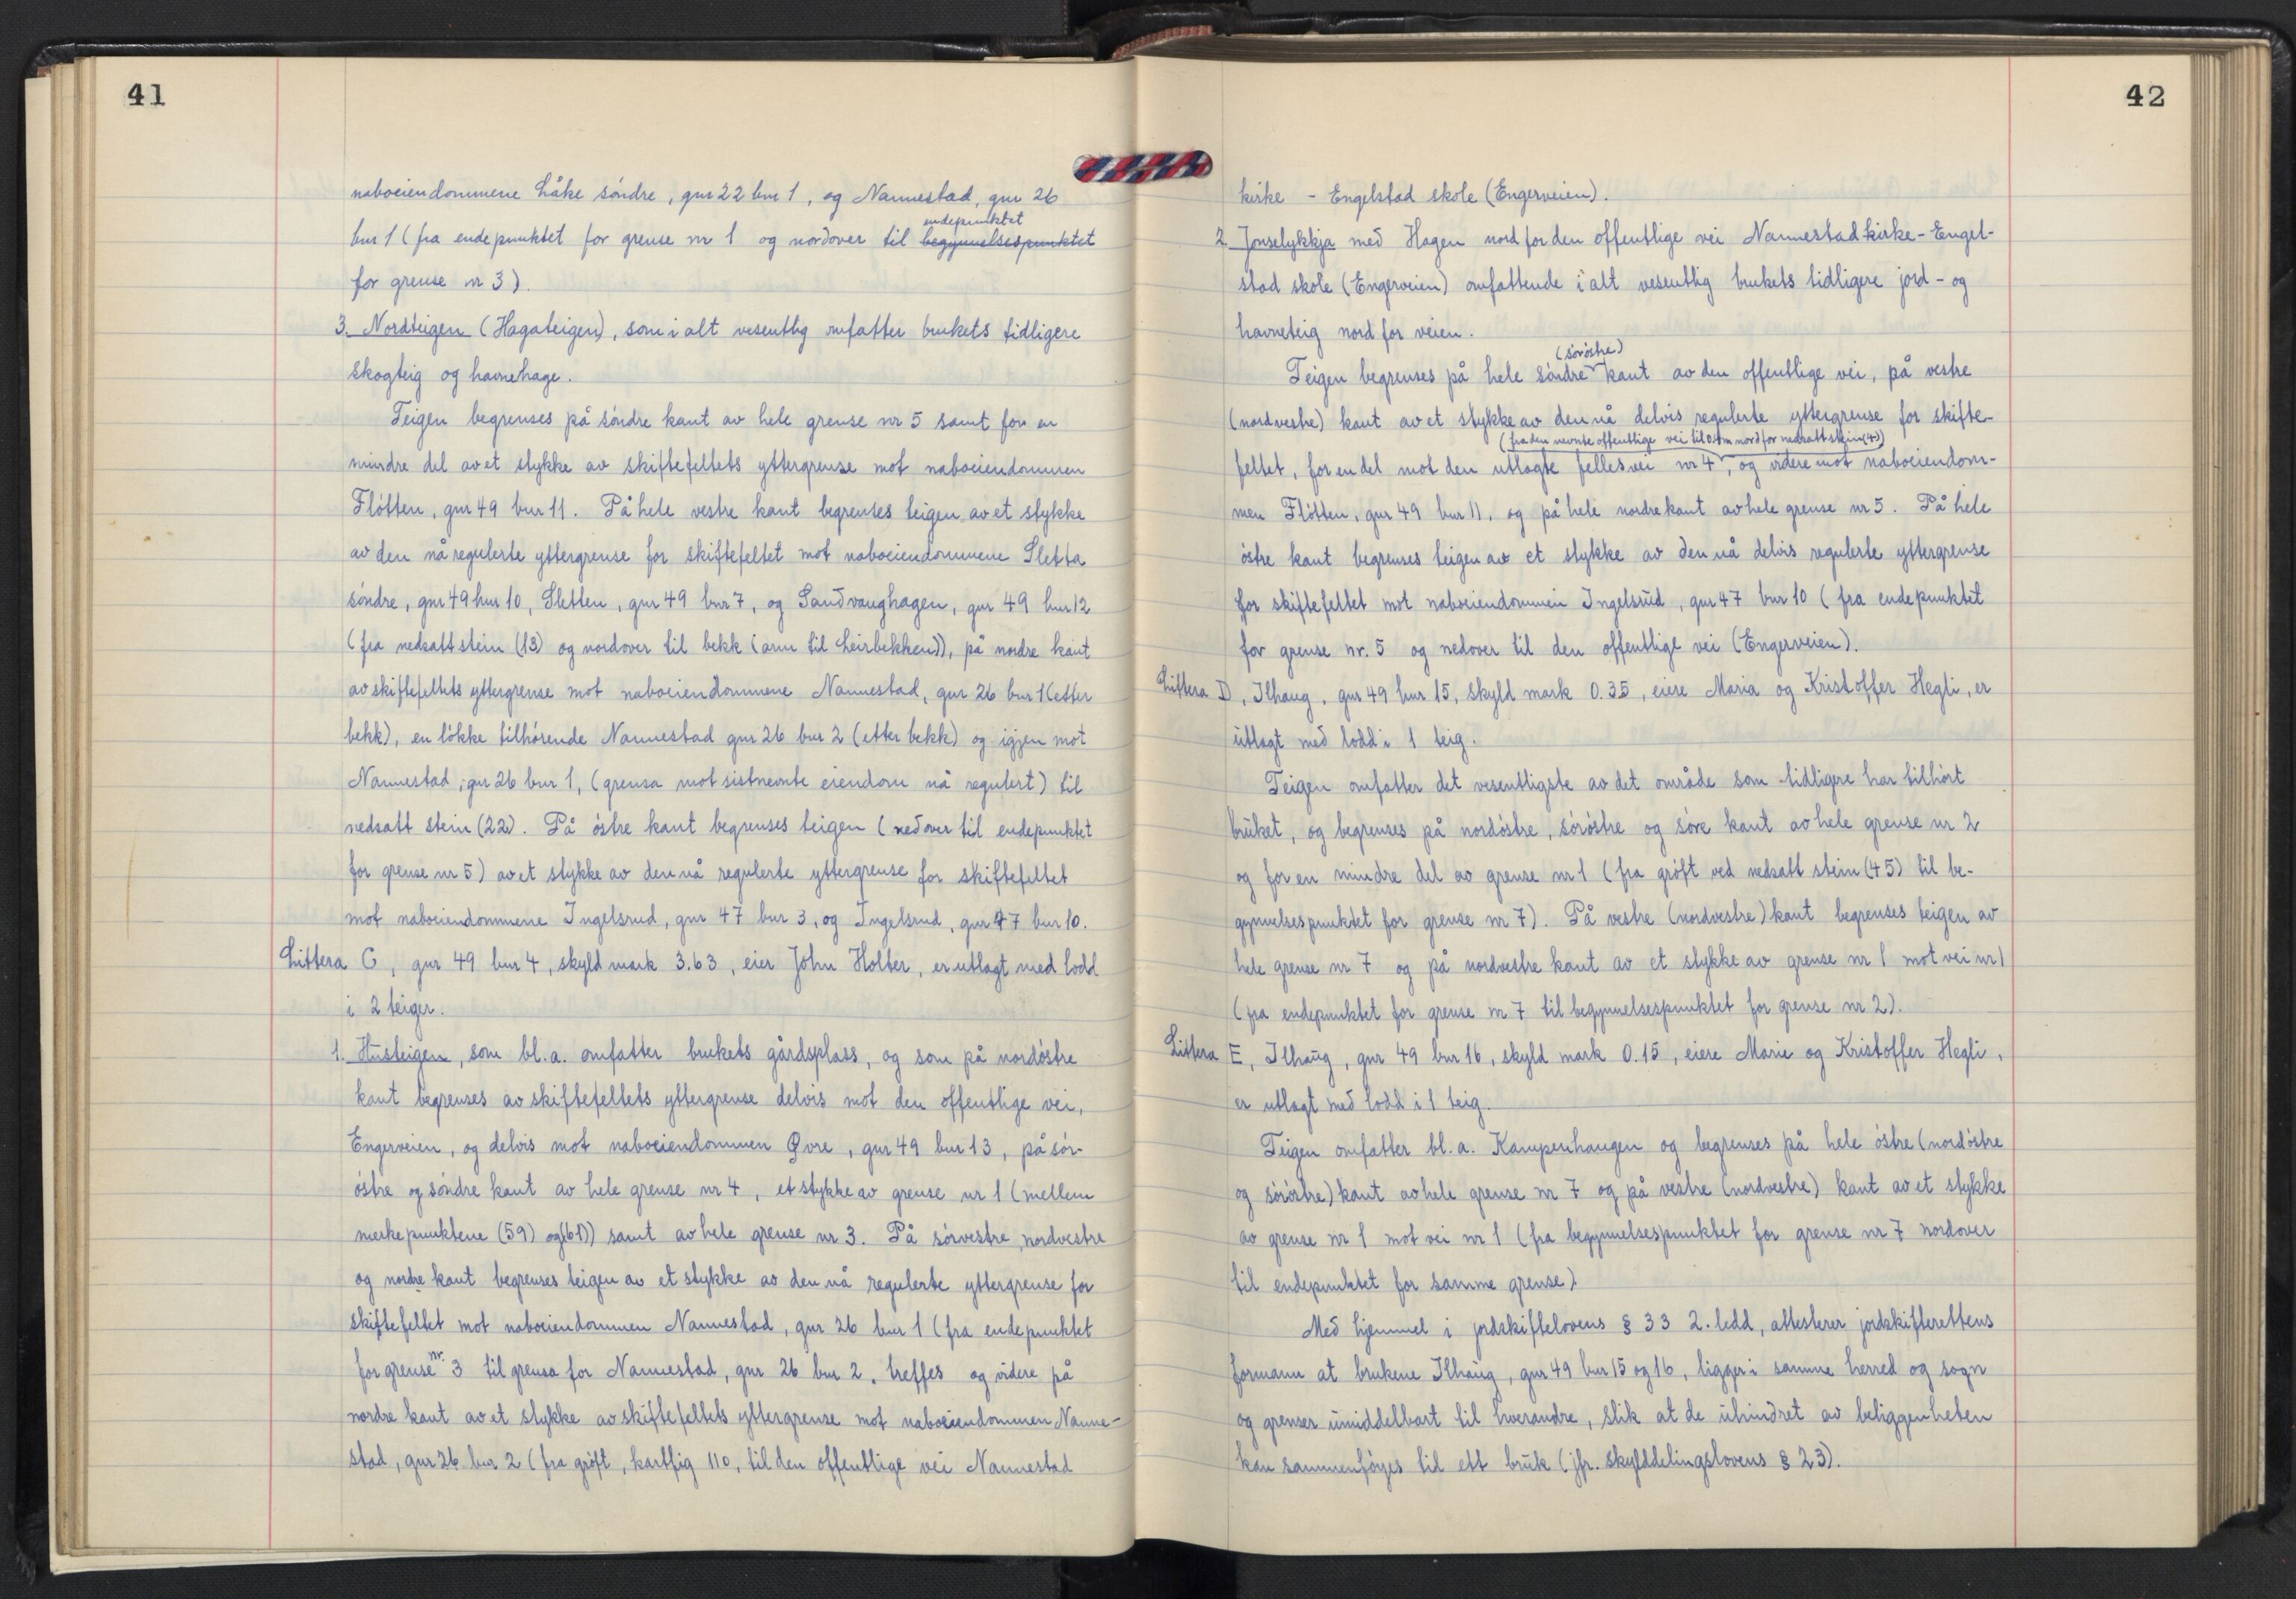 41
naboeiendommene Låke søndre, gnr 22 bnr 1, og Nannestad, gnr 26
endepunktet
bnr 1 (fra endepunktet for grense nr 1 og nordover til begynnelsespunktet
for grense nr 3).
3. Nordteigen (Hagateigen), som i alt vesentlig omfatter brukets tidligere
skogteig og havnehage.
Teigen begrenses på søndre kant av hele grense nr 5 samt for en
mindre del av et stykke av skiftefeltets yttergrense mot naboeiendommen
Fløtten, gnr 49 bnr 11. På hele vestre kant begrenses teigen av et stykke
av den nå regulerte yttergrense for skiftefeltet mot naboeiendommene Sletta
søndre, gnr 49 bnr 10, Sletten, gnr 49 bnr 7, og Sandvanghagen, gnr 49 bnr 12
(fra nedsatt stein (13) og nordover til bekk (arm til Leirbekken)), på nordre kant
av skiftefeltets yttergrense mot naboeiendommene Nannestad, gnr 26 bnr 1 (etter
bekk), en løkke tilhørende Nannestad gnr 26 bnr 2 (etter bekk) og igjen mot
Nannestad, gnr 26 bnr 1, (grensa mot sistnevnte eiendom nå regulert) til
nedsatt stein (22). På østre kant begrenses teigen (nedover til endepunktet
for grense nr 5) av et stykke av den nå regulerte yttergrense for skiftefeltet
mot naboeiendommene Ingelsrud, gnr 47 bnr 3, og Ingelsrud, gnr 47 bnr 10.
Littera C, gnr 49 bnr 4, skyld mark 3.63, eier John Holter, er utlagt med lodd
i 2 teiger.
1. Husteigen, som bl.a. omfatter brukets gårdsplass, og som på nordøstre
kant begrenses av skiftefeltets yttergrense delvis mot den offentlige vei,
Engerveien, og delvis mot naboeiendommen Øvre, gnr 49 bnr 13, på sør-
østre og søndre kant av hele grense nr 4, et stykke av grense nr 1 (mellem
merkepunktene (59) og (61)) samt av hele grense nr 3. På sørvestre, nordvestre
og nordre kant begrenses teigen av et stykke av den nå regulerte yttergrense for
skiftefeltet mot naboeiendommen Nannestad, gnr 26 bnr 1 (fra endepunktet
for grense nr. 3 til grensa for Nannestad, gnr 26 bnr 2, treffes og videre på
nordre kant av et stykke av skiftefeltets yttergrense mot naboeiendommen Nanne-
stad, gnr 26 bnr 2 (fra grøft, kartfig 110, til den offentlige vei Nannestad
42
kirke - Engelstad skole (Engerveien).
2. Jonselykkja med Hagen nord for den offentlige vei Nannestad kirke - Engel-
stad skole (Engerveien) omfattende i alt vesentlig brukets tidligere jord- og
havneteig nord for veien.
(sørøstre)
Teigen begrenses på hele søndre kant av den offentlige vei, på vestre
(nordvestre) kant av et stykke av den nå delvis regulerte yttergrense for skifte-
(fra den nevnte offentlige vei til 0.4m nord for nedsatt stein (4))
feltet, for en del mot den utlagte fellesvei nr 4, og videre mot naboeiendom-
men Fløtten, gnr 49 bnr 11, og på hele nordre kant av hele grense nr 5. På hele
østre kant begrenses teigen av et stykke av den nå delvis regulerte yttergrense
for skiftefeltet mot naboeiendommen Ingelsrud, gnr 47 bnr 10 (fra endepunktet
for grense nr. 5 og nedover til den offentlige vei (Engerveien).
Littera D, Ilhaug, gnr 49 bnr 15, skyld mark 0.35, eiere Maria og Kristoffer Hegli, er
utlagt med lodd i 1 teig.
Teigen omfatter det vesentligste av det område som tidligere har tilhørt
bruket, og begrenses på nordøstre, sørøstre og søre kant av hele grense nr 2
og for en mindre del av grense nr 1 (fra grøft ved nedsatt stein (45) til be-
gynnelsespunktet for grense nr 7). På vestre (nordvestre) kant begrenses teigen av
hele grense nr 7 og på nordvestre kant av et stykke av grense nr 1 mot vei nr 1
(fra endepunktet for grense nr 7 til begynnelsespunktet for grense nr 2).
Littera E, Ilhaug, gnr 49 bnr 16, skyld mark 0.15, eiere Marie og Kristoffer Hegli,
er utlagt med lodd i 1 teig.
Teigen omfatter bl.a. Kampenhaugen og begrenses på hele østre (nordøstre
og sørøstre) kant av hele grense nr 7 og på vestre (nordvestre) kant av et stykke
av grense nr 1 mot vei nr 1 (fra begynnelsespunktet for grense nr 7 nordover
til endepunktet for samme grense)
Med hjemmel i jordskiftelovens § 33 2. ledd, attesterer jordskifterettens
formann at brukene Ilhaug, gnr 49 bnr 15 og 16, ligger i samme herred og sogn
og grenser umiddelbart til hverandre, slik at de uhindret av beliggenheten
kan sammenføyes til ett bruk (jfr. skylddelingslovens § 23).